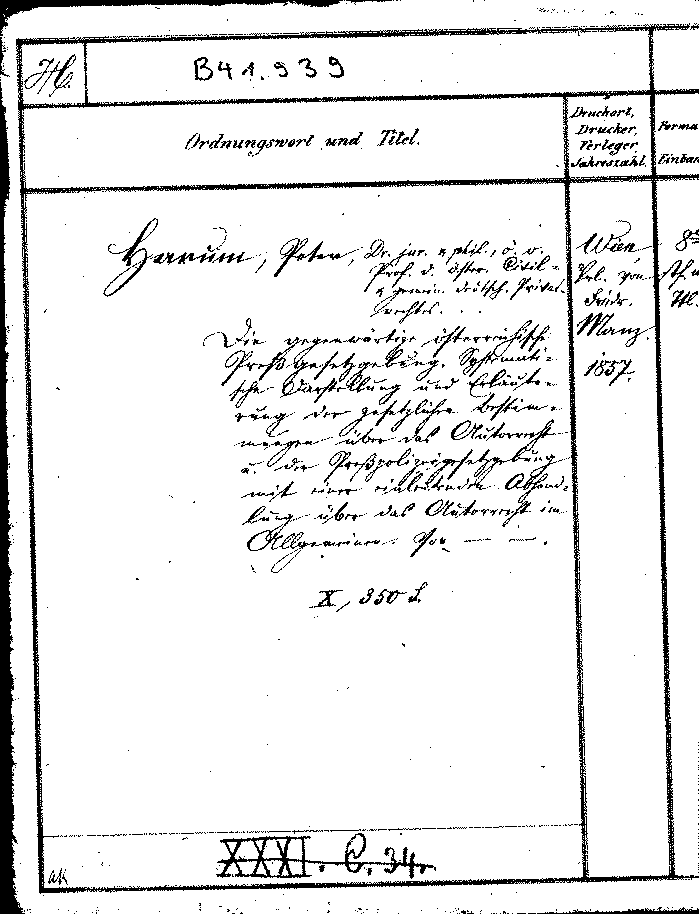 H.
B41.939
Ordnungswort und Titel.
Druckort,
Drucker,
Verleger,
Jahreszahl.
Forma
Einban
Harum, Peter, Dr. jur. u. phil., ö. o.
Prof. d. österr. Civil-
u. gemein. deutsch. Privat-
rechtes. . .
Die gegenwärtige österreichische
Preßgesetzgebung. Systemati-
sche Darstellung und Erläute-
rung der gesetzlichen Bestim-
mungen über das Autorrecht
u. die Preßpolizeigesetzgebung
mit einer einleitenden Abhand-
lung über das Autorrecht im
Allgemeinen. Von — — .
X, 350 S.
Wien
Vrl. von
Fridr.
Manz.
1857.
8º
XXXI. C. 34.
ak